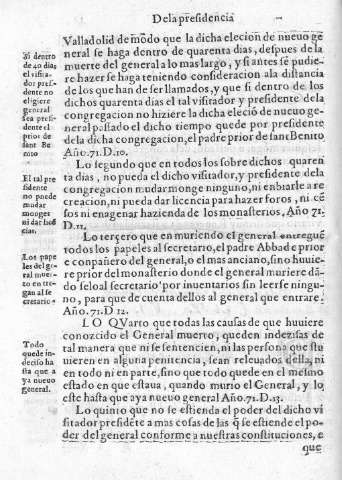 De la presidencia
Valladolid de modo que la dicha elecion de nueuo ge
neral se haga dentro de quarenta dias, despues de la
muerte del general o lo mas largo, y si antes se pudie-
re hazer se haga teniendo consideracion ala distancia
de los que han de ser llamados, y que si dentro de los
dichos quarenta dias el tal visitador y presidente de la
congregacion no hiziere la dicha eleciõ de nueuo ge-
neral passado el dicho tiempo quede por presidente
de la dicha congregacion, el padre prior de sant Benito
Año. 71. D. 10.
Si dentro
de 40 dias
el visita-
dor presi-
dente no
eligiere
general
sea presi-
dente el
prior de
sant Be
nito
Lo segundo que en todos los sobre dichos quaren
ta dias, no pueda el dicho visitador, y presidente dela
congregacion mudar monge ninguno, ni enbiarle a re
creacion, ni pueda dar licencia para hazer foros, ni cẽ
sos ni enagenar hazienda de los monasterios, Año 71.
D. 11.
El tal pre
sidente
no puede
mudar
monges
ni dar fue
cias.
Lo tercero que en muriendo el general entregue
todos los papeles al secretario, el padre Abbad e prior
e conpañero del general, o el mas anciano, sino huuie-
re prior del monasterio donde el general muriere dã-
do selo al secretario por inuentarios sin leerse ningu-
no, para que de cuenta dellos al general que entrare.
Año. 71. D. 12.
Los pape
les del ge-
ral muer-
to en tre-
gan al se
cretario
LO QVarto que todas las causas de que huuiere
conozcido el General muerto, queden indezisas de
tal manera que ni se sentencien, ni las personas que stu
uieren en alguna penitencia, sean releuados della, ni
en todo ni en parte, sino que todo quede en el mesmo
estado en que estaua, quando murio el General, y lo
este hasta que aya nueuo general Año. 71. D. 13.
Todo
quede in-
deciso ha
sta que a
ya nueuo
general.
Lo quinto que no se estienda el poder del dicho vi
sitador presidẽte a mas cosas de las q̃ se estiende el po-
der del general conforme a nuestras constituciones, e
que